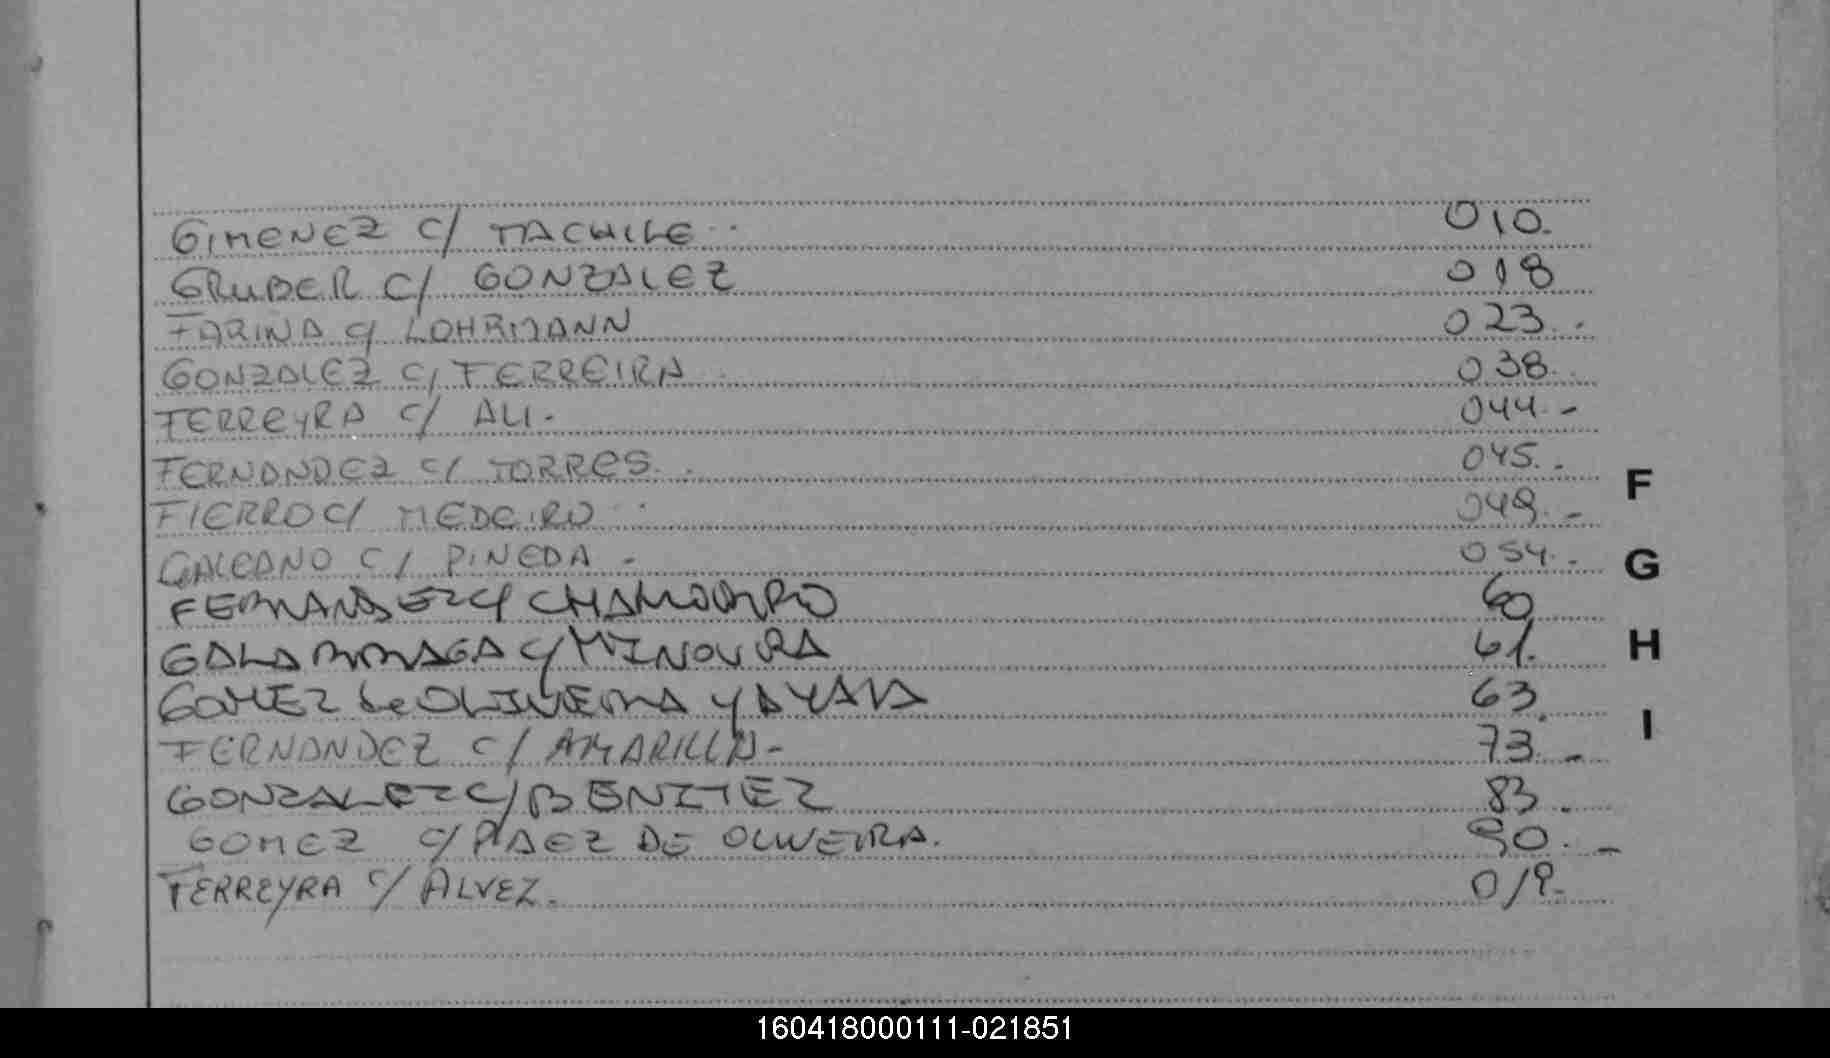 GIMENEZ C/ TACHILE 010.
GRUBER C/ GONZALEZ 018
FARINA C/ LOHRMANN 023.
GONZALEZ C/ FERREIRA 038.
FERREYRA C/ ALI.- 044.-
FERNANDEZ C/ TORRES. 045.
FIERRO C/ MEDEIRO 049.-
GALEANO C/ PINEDA - 054.-
FERNANDEZ C/ CHAMORRO 60
GALARRAGA C/ MINOURA 61.
GOMEZ de OLIVEIRA Y AYALA 63.
FERNANDEZ C/ AMARILLA- 73.-
GONZALEZ C/ BENITEZ 83.
GOMEZ C/ PAEZ DE OLIVEIRA. 90.-
FERREYRA C/ ALVEZ. 019.
F
G
H
I
160418000111-021851